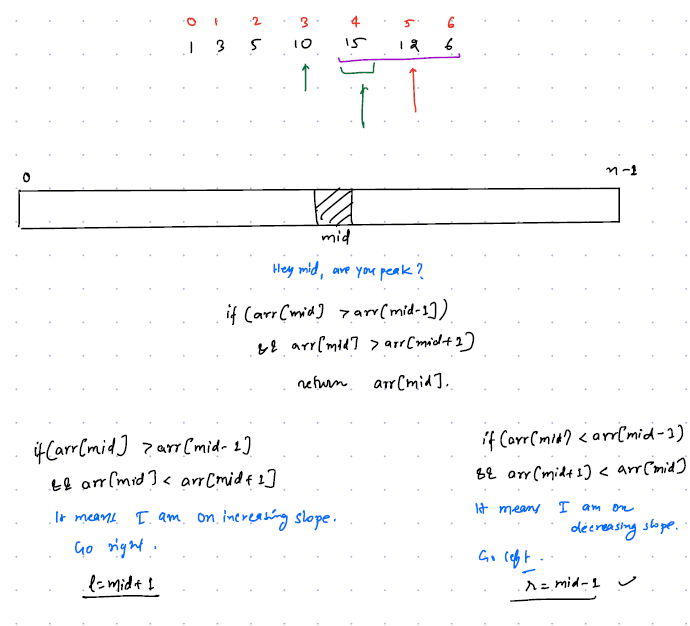 0 1 2 3 4 5 6
1 3 5 10 15 12 6
0 n-1
mid
Hey mid, are you peak?
if (arr[mid] > arr[mid-1])
&& arr[mid] > arr[mid+1]
return arr[mid].
if (arr[mid] > arr[mid-1]
&& arr[mid] < arr[mid+1]
It means I am on increasing slope.
Go right.
l=mid+1
if (arr[mid] < arr[mid-1)
&& arr[mid+1] < arr[mid]
It means I am on
decreasing slope.
Go left.
r=mid-1 ✓